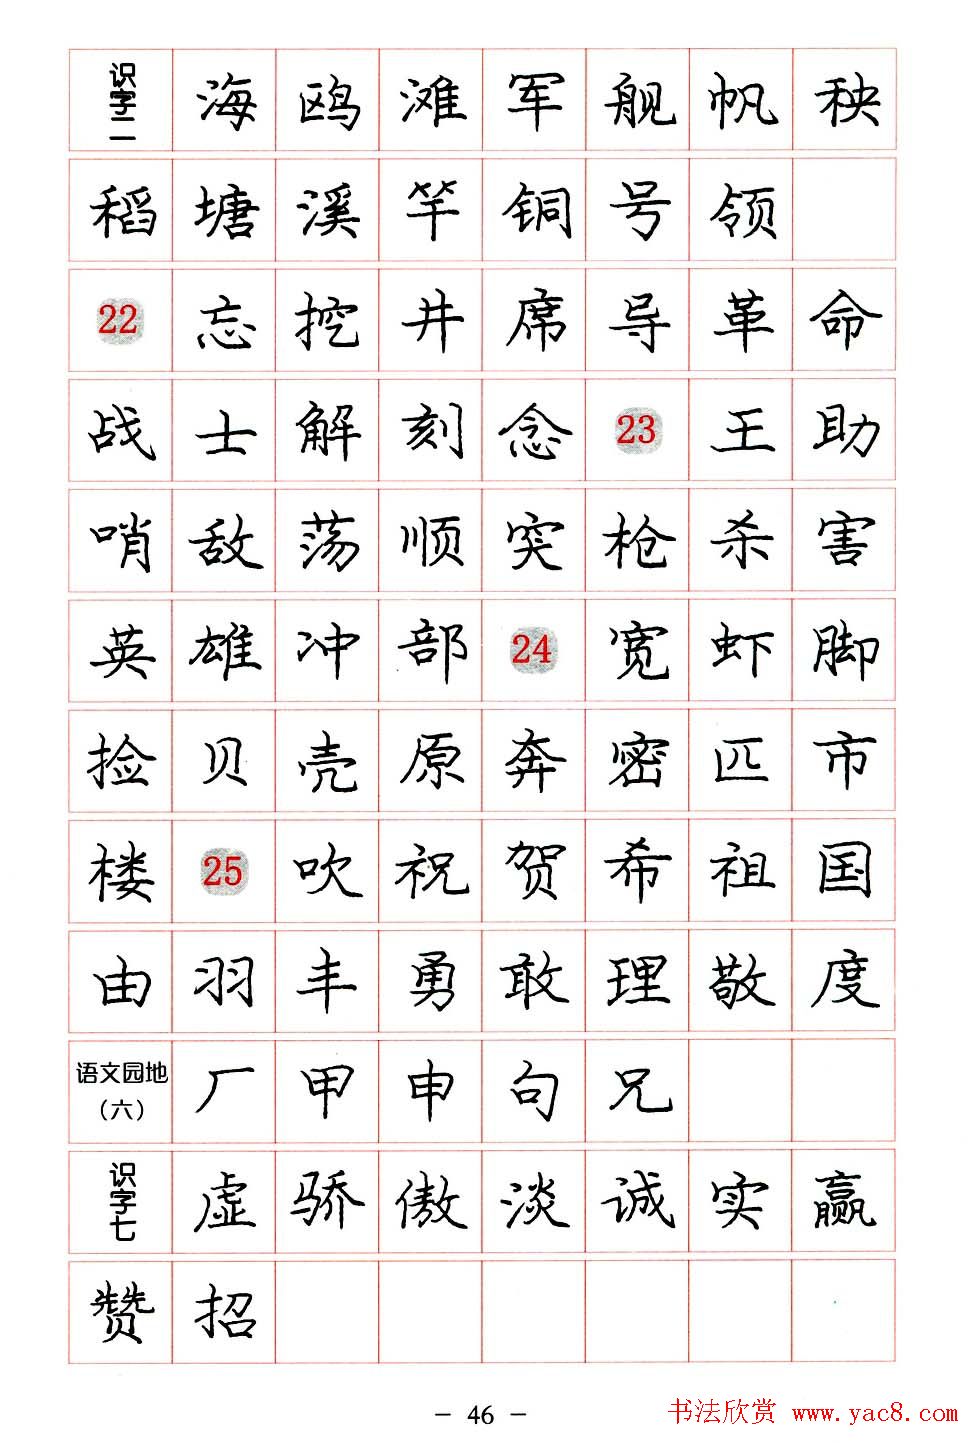 识字二 海 鸥 滩 军 舰 帆 秧
稻 塘 溪 竿 铜 号 领
22 忘 挖 井 席 导 革 命
战 士 解 刻 念 23 王 助
哨 敌 荡 顺 突 枪 杀 害
英 雄 冲 部 24 宽 虾 脚
捡 贝 壳 原 奔 密 匹 市
楼 25 吹 祝 贺 希 祖 国
由 羽 丰 勇 敢 理 敬 度
语文园地（六） 厂 甲 申 句 兄
识字七 虚 骄 傲 淡 诚 实 赢
赞 招
- 46 -
书法欣赏 www.yac8.com